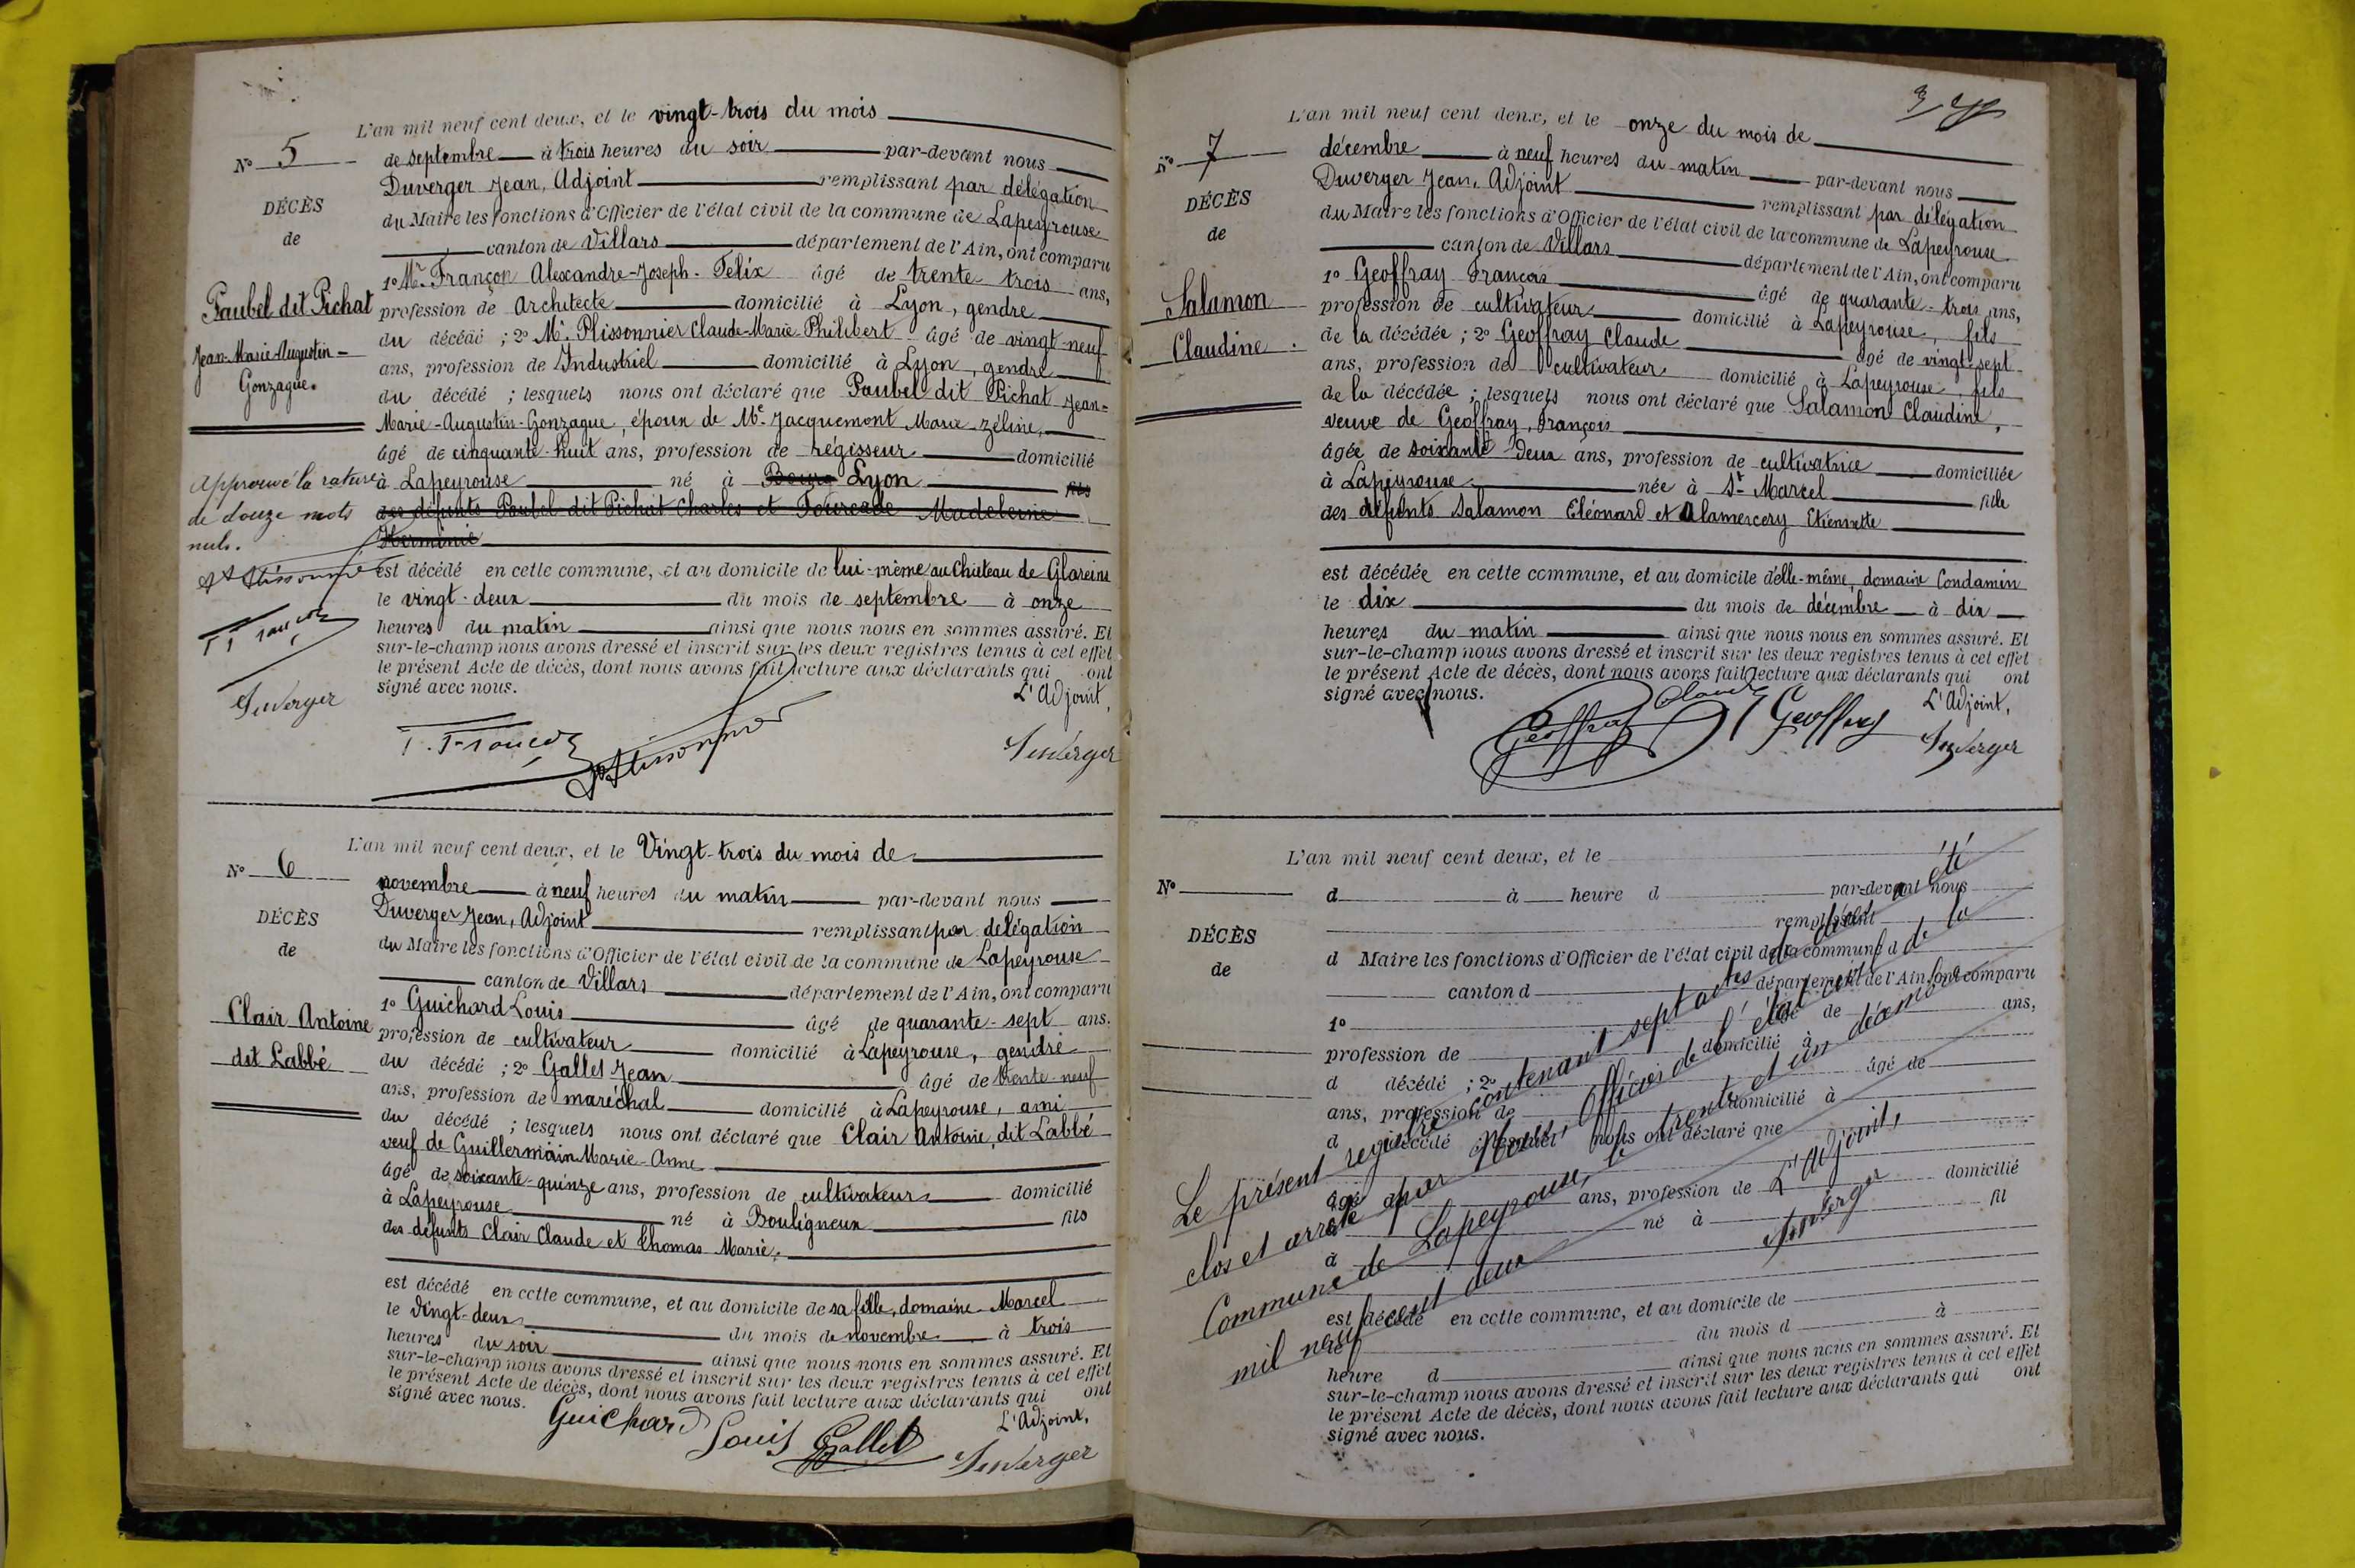 L'an mil neuf cent deux, et le vingt-trois du mois
N° 5
de septembre à trois heures du soir par-devant nous
Duverger Jean, Adjoint remplissant par délégation
DÉCÈS
du Maire les fonctions d'Officier de l'état civil de la commune de Lapeyrouse
de
canton de Villars département de l'Ain, ont comparu
1° Mr. Françon Alexandre-Joseph-Felix âgé de trente trois ans,
Paubel dit Pichat
profession de Architecte domicilié à Lyon, gendre
du décédé ; 2° Mr. Plissonnier Claude-Marie-Philibert âgé de vingt-neuf
Jean-Marie-Augustin-
ans, profession de Industriel domicilié à Lyon, gendre
Gonzague.
du décédé ; lesquels nous ont déclaré que Paubel dit Pichat Jean-
Marie-Augustin-Gonzague, époux de Me. Jacquemont Marie-Zéline,
âgé de cinquante-huit ans, profession de régisseur domicilié
Approuvé la rature
à Lapeyrouse né à Bourg Lyon fils
de douze mots
des défunts Paubel dit Pichat Charles et Fourcade Madeleine
nuls.
Herminie
est décédé en cette commune, et au domicile de lui-même au Château de Glareins
le vingt-deux du mois de septembre à onze
heures du matin ainsi que nous nous en sommes assuré. Et
sur-le-champ nous avons dressé et inscrit sur les deux registres tenus à cet effet
le présent Acte de décès, dont nous avons fait lecture aux déclarants qui ont
signé avec nous. L'Adjoint,
Duverger
Duverger
L'an mil neuf cent deux, et le Vingt-trois du mois de
N° 6
novembre à neuf heures du matin par-devant nous
Duverger Jean, Adjoint remplissant par délégation
DÉCÈS
du Maire les fonctions d'Officier de l'état civil de la commune de Lapeyrouse
de
canton de Villars département de l'Ain, ont comparu
1° Guichard Louis âgé de quarante-sept ans.
Clair Antoine
profession de cultivateur domicilié à Lapeyrouse, gendre
dit Labbé
du décédé ; 2° Gallet Jean âgé de trente-neuf
ans, profession de maréchal domicilié à Lapeyrouse, ami
du décédé ; lesquels nous ont déclaré que Clair Antoine, dit Labbé
veuf de Guillermain Marie-Anne
âgé de soixante-quinze ans, profession de cultivateur domicilié
à Lapeyrouse né à Bouligneux fils
des défunts Clair Claude et Thomas Marie,
est décédé en cette commune, et au domicile de sa fille, domaine Marcel
le vingt-deux du mois de novembre à trois
heures du soir ainsi que nous nous en sommes assuré. Et
sur-le-champ nous avons dressé et inscrit sur les deux registres tenus à cet effet
le présent Acte de décès, dont nous avons fait lecture aux déclarants qui ont
signé avec nous. L'Adjoint,
Guichard Louis Gallet Duverger
L'an mil neuf cent deux, et le onze du mois de
N° 7
décembre à neuf heures du matin par-devant nous
Duverger Jean, Adjoint remplissant par délégation
DÉCÈS
du Maire les fonctions d'Officier de l'état civil de la commune de Lapeyrouse
de
canton de Villars département de l'Ain, ont comparu
1° Geoffray François âgé de quarante-trois ans,
Salamon
profession de cultivateur domicilié à Lapeyrouse, fils
Claudine
de la décédée ; 2° Geoffray Claude âgé de vingt-sept
ans, profession de cultivateur domicilié à Lapeyrouse, fils
de la décédée ; lesquels nous ont déclaré que Salamon Claudine,
veuve de Geoffray, François
âgée de soixante deux ans, profession de cultivatrice domiciliée
à Lapeyrouse née à St Marcel fille
des défunts Salamon Eléonard et Alamercery Etiennette
est décédée en cette commune, et au domicile d'elle-même, domaine Condamin
le dix du mois de décembre à dix
heures du matin ainsi que nous nous en sommes assuré. Et
sur-le-champ nous avons dressé et inscrit sur les deux registres tenus à cet effet
le présent Acte de décès, dont nous avons fait lecture aux déclarants qui ont
signé avec nous. L'Adjoint,
Geoffray Claude Geoffray Duverger
L'an mil neuf cent deux, et le
N°
d à heure d par-devant nous
remplissant
DÉCÈS
d Maire les fonctions d'Officier de l'état civil de la commune d
de
canton d département de l'Ain, ont comparu
1° âgé de ans,
profession de domicilié à
d décédé ; 2° âgé de
ans, profession de domicilié à
d décédé ; lesquels nous ont déclaré que
âgé ans, profession de domicilié
à né à fil
d
est décédé en cette commune, et au domicile de
le du mois d à
heure d ainsi que nous nous en sommes assuré. Et
sur-le-champ nous avons dressé et inscrit sur les deux registres tenus à cet effet
le présent Acte de décès, dont nous avons fait lecture aux déclarants qui ont
signé avec nous.
Le présent registre contenant sept actes de décès a été
clos et arrêté par Nous, Officier de l'état civil de la
Commune de Lapeyrouse, le trente et un décembre
mil neuf cent deux
L'Adjoint,
Duverger